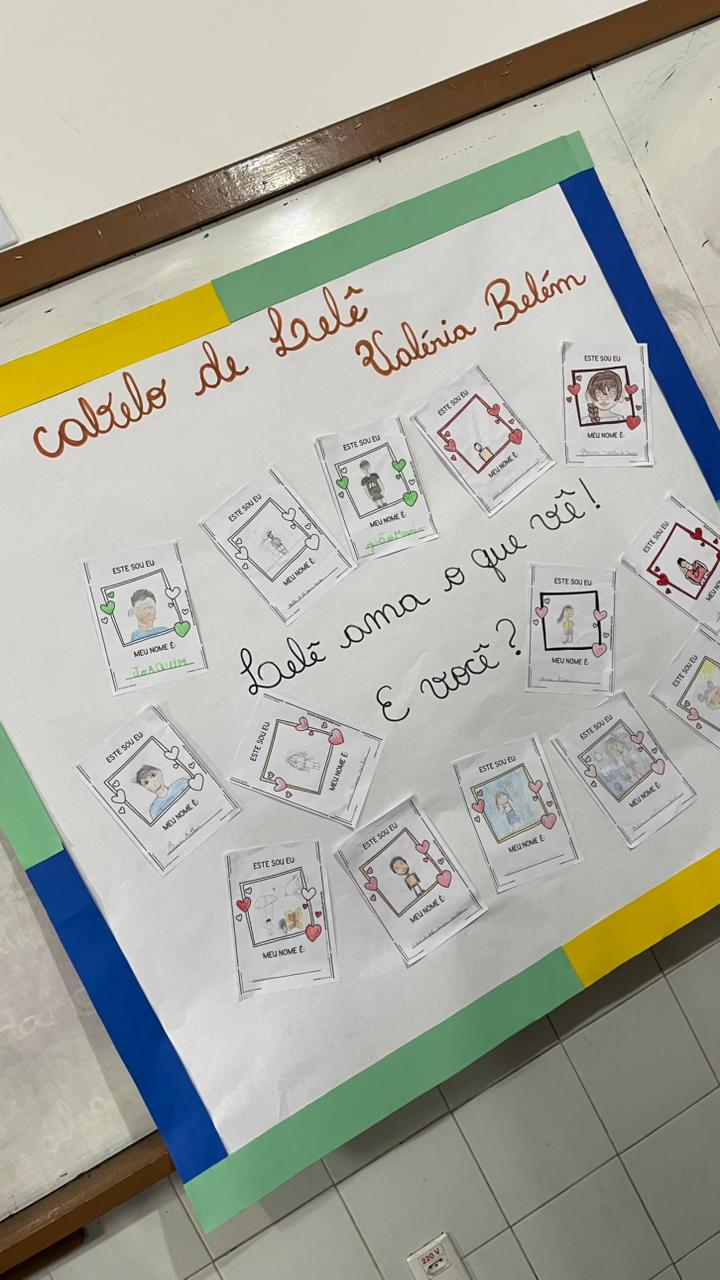 cabelo de Lelê
Valéria Belém
ESTE SOU EU
MEU NOME É:
ESTE SOU EU
MEU NOME É:
ESTE SOU EU
MEU NOME É:
ESTE SOU EU
MEU NOME É:
João Maria
ESTE SOU EU
MEU NOME É:
JOAQUIM
Lelê ama o que vê!
E você?
ESTE SOU EU
MEU NOME É:
ESTE SOU EU
MEU NO
ESTE SOU EU
MEU NOME É:
ESTE SOU EU
MEU NOME É:
ESTE SOU EU
MEU NOME É:
ESTE SOU EU
MEU NOME É:
ESTE SOU EU
ESTE SOU EU
MEU NOME É:
ESTE SOU EU
MEU NOME É:
220 V